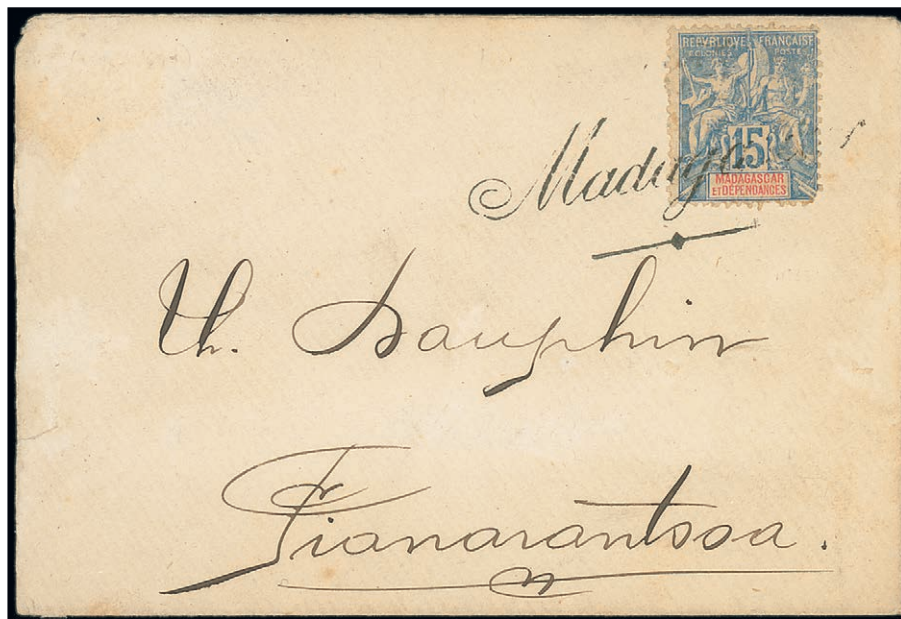 REPVBLIQUE FRANÇAISE
COLONIES POSTES
15
MADAGASCAR
ET DÉPENDANCES
Madagascar
Th. Dauphin
Fianarantsoa.